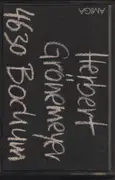 AMIGA
Herbert
Grönemeyer
4630 Bochum